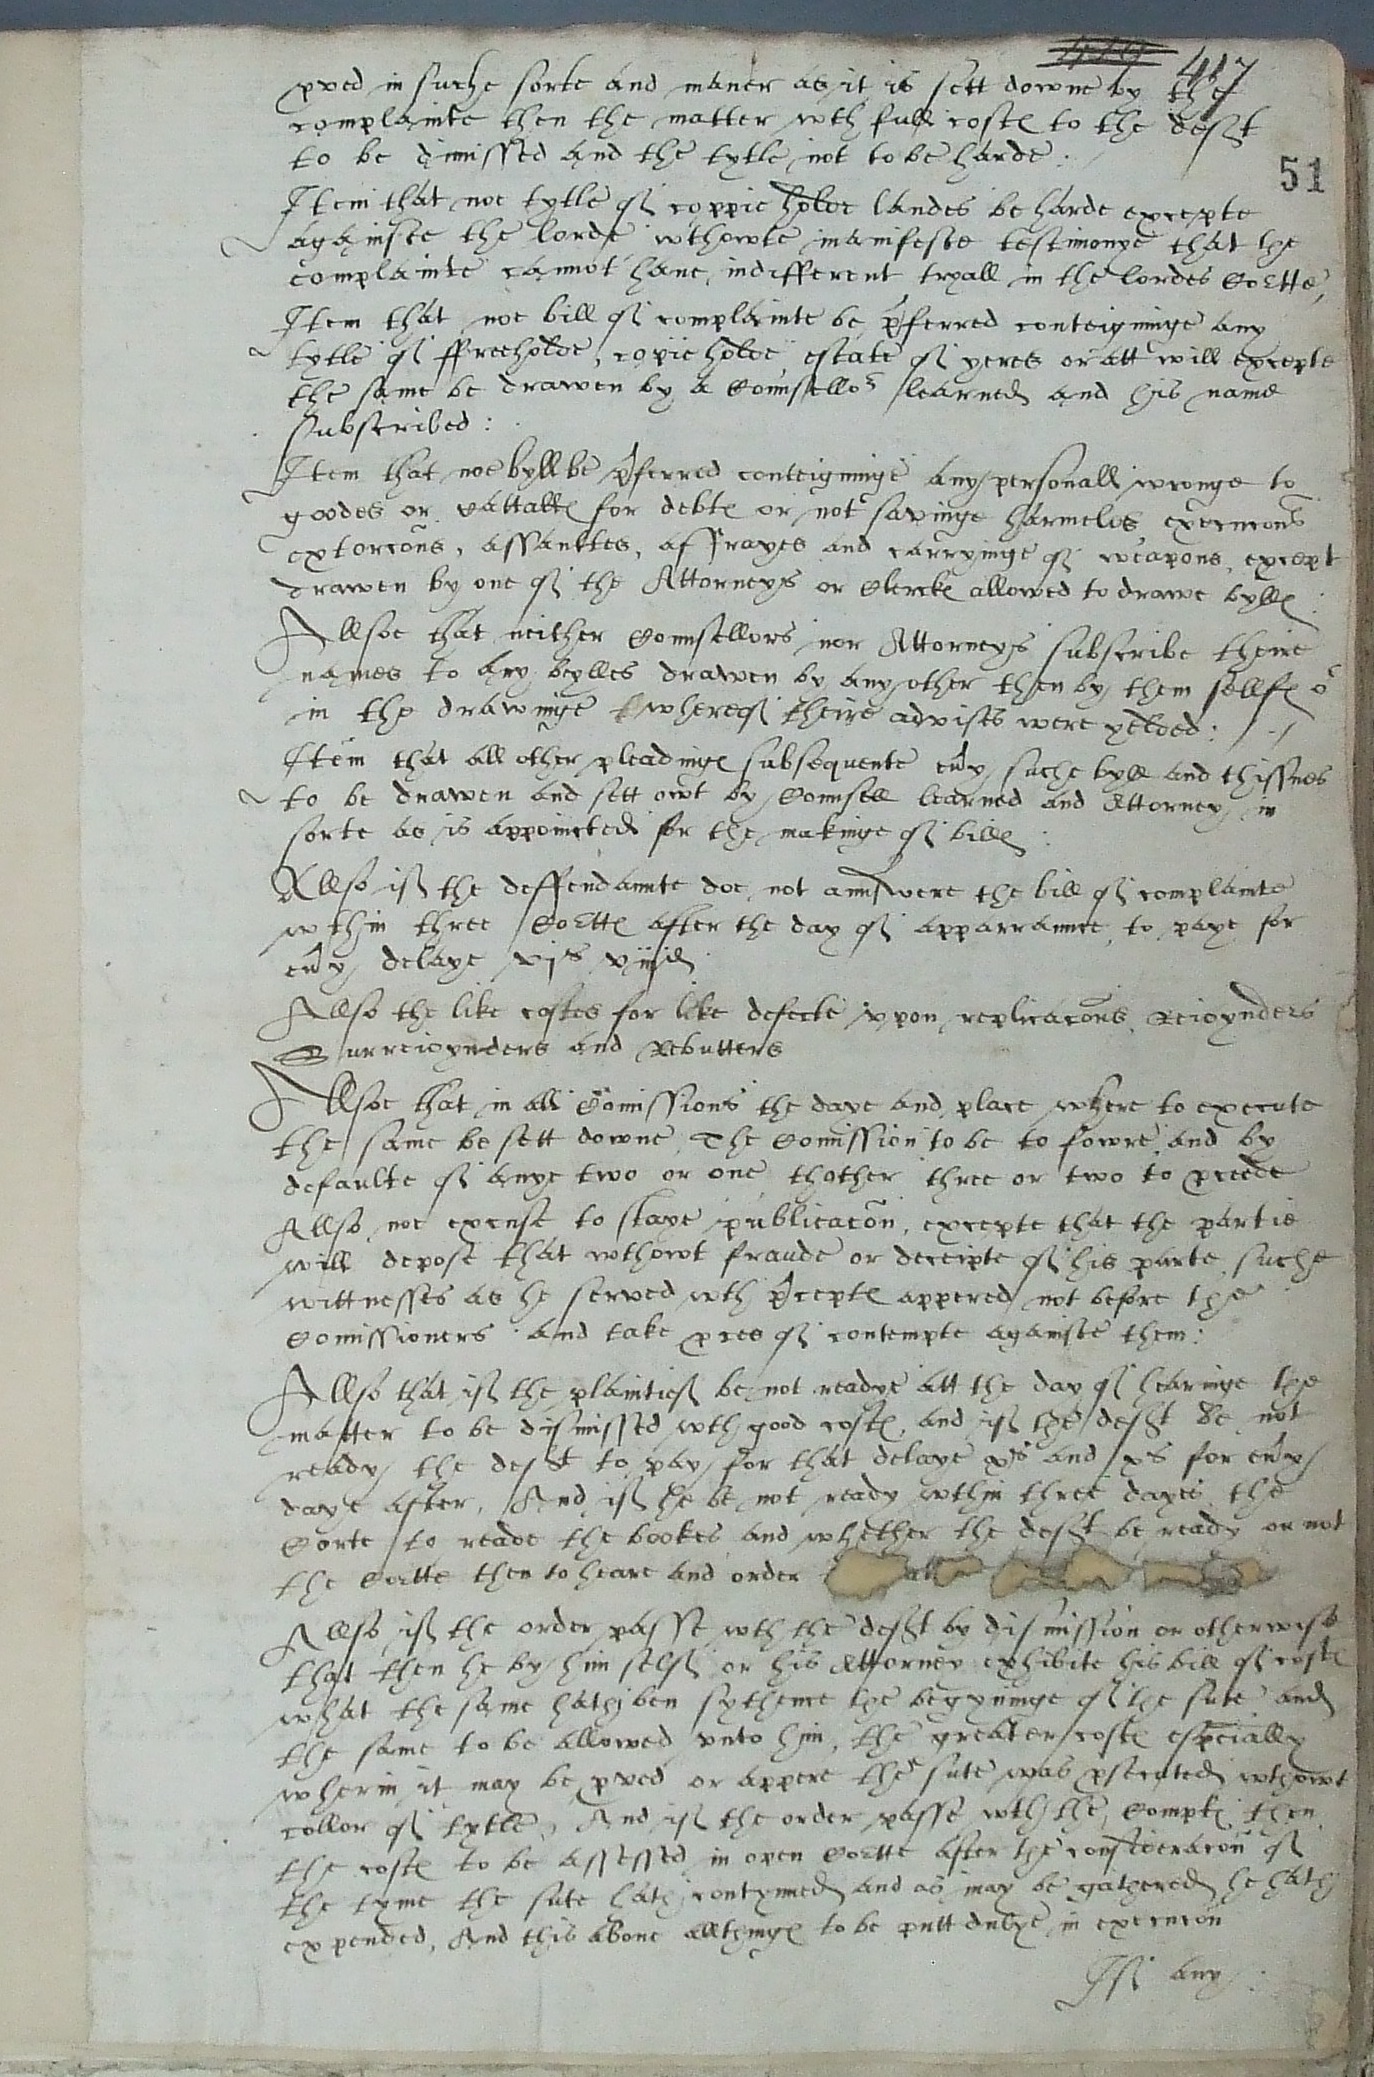 417
51
pved in suche sorte and maner as it is sett downe by the
complainte then the matter wth full costℯ to the deft
to be dimissed and the tytle not to be harde :
Item that noe tytle of coppie holde landes be harde excepte
againste the lorde wthowte manifeste testimonye that the
complainte cannot haue indifferent tryall in the lordes Coͬtte,
Item that noe bill of complainte be pͬferred conteigninge any
tytle of ffreeholde, copie holde estate of yeres or att will excepte
the same be drawen by a Counselloͬ learned and his name
subscribed :
Item that noe byll be pͬferred conteigninge any personall wronge to
goodes or cattallℯ for debtℯ or not savinge harmeles execucons
extorcons, assaultes, affrayes and carryinge of weapons, except
drawen by one of the Attorneys or Clerckℯ allowed to drawe byllℯ :
Allsoe that neither Counsellors nor Attorneys subscribe theire
names to any bylles drawen by any other then by them sellfℯ oͬ
in the drawinge whereof theire advises were yelded :
Item that all other pleadingℯ subsequente eu͛y suche byll and thissues
to be drawen and sett owt by Counsell learned and Attorney in
sorte as is appointed for the makinge of billℯ :
Allso if the deffendannte doe not annswere the bill of complainte
wthin three Coͬttℯ after the day of apparrannce, to paye for
eu͛y delaye vjs viijd
Allso the like costes for like defecte vpon replicacons, Reioynders
Surreioynders and Rebutters
Allsoe that in all Comissions the daye and place where to execute
the same be sett downe, The Comission to be to fowre and by
defaulte of anye two or one thother three or two to pceede
Allso noe excuse to staye publicacon, excepte that the partie
will depose that wthowt fraude or deceipte of his parte suche
wittnesses as he served wth pͬceptℯ appered not before the
Comissioners and take pces of contempte againste them :
Allso that if the plaintief be not readye att the day of hearinge the
matter to be dismissed wth good costℯ, and if the deft be not
ready the deft to pay for that delaye xs and xs for eu͛y
daye after, And if he be not ready wthin three dayes the
Corte to reade the bookes and whether the deft be ready or not
the Coͬtte then to heare and order
Allso if the order passe wth the deft by dismission or otherwise
that then he by him self or his Attorney exhibite his bill of costℯ
what the same hath ben sythence the begynninge of the sute and
the same to be allowed vnto him, the greater costℯ especially
wherin it may be pved or appere the sute was psecuted wthowt
collor of tytle, And if the order passe wth the Complt then
the costℯ to be assessed in open Coͬtte after the consideracon of
the tyme the sute hath contynued and as may be gathered he hath
expended, And this aboue allthingℯ to be putt dulye in execucon
If any :